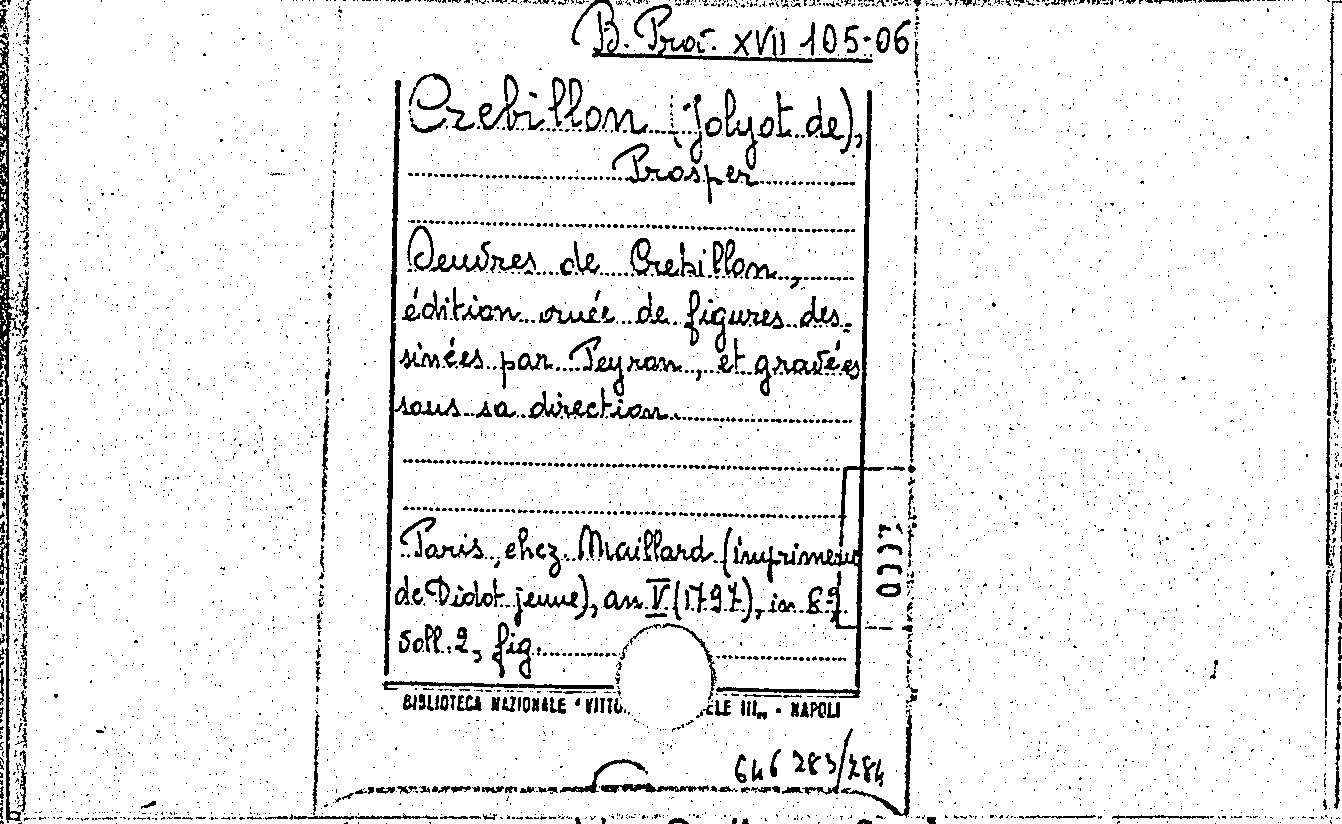 B. Prov. XVII 105-06
Crebillon (Jolyot de),
Prosper
Oeuvres de Crebillon,
édition ornée de figures des=
sinées par Peyron, et gravées
sous sa direction.
Paris, chez Maillard (imprimeur
de Didot jeune), an V (1797), in 8º.
voll. 2, fig.
BIBLIOTECA NAZIONALE "VITTO ELE III„ - NAPOLI
646 283/284